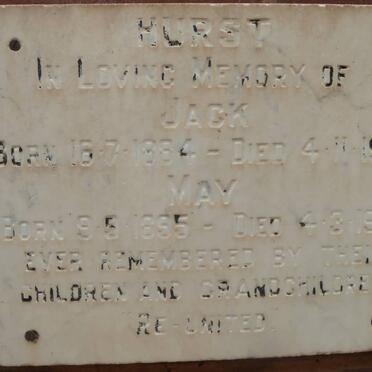 HURST
IN LOVING MEMORY OF
JACK
BORN 16-7-1884 - DIED 4-11-19
MAY
BORN 9-5-1895 - DIED 4-3-19
EVER REMEMBERED BY THEI
CHILDREN AND GRANDCHILDRE
RE-UNITED.